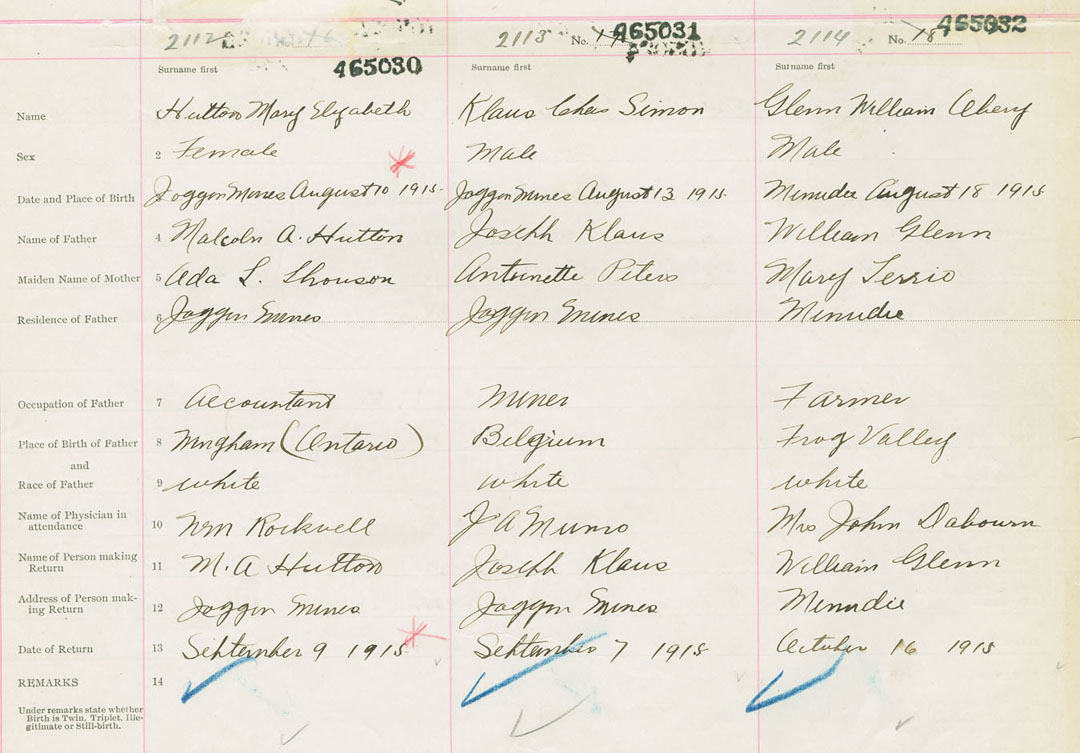 2112 2113 No. 17 465031 2114 No. 18 465032
Surname first 465030 Surname first Surname first
Name Hutton Mary Elizabeth Klaus Chas Simon Glenn William
Sex 2 Female Male Male
Date and Place of Birth Joggin Mines August 10 1915. Joggin Mines August 13 1915. Minudie August 18 1915
Name of Father 4 Malcoln A. Hutton Joseph Klaus William Glenn
Maiden Name of Mother 5 Ada L. Antoinette Peters Mary Terrio
Residence of Father 6 Joggin Mines Joggin Mines Minudie
Occupation of Father 7 Accountant Miner Farmer
Place of Birth of Father 8 (Ontario) Belgium Frog Valley
and
Race of Father 9 white white white
Name of Physician in
attendance 10 Wm Rockwell J A Munro Mrs John
Name of Person making
Return 11 M. A Hutton Joseph Klaus William Glenn
Address of Person mak-
ing Return 12 Joggin Mines Joggin Mines Minudie
Date of Return 13 September 9 1915 September 7 1915 October 16 1915
REMARKS 14
Under remarks state whether
Birth is Twin, Triplet, Ille-
gitimate or Still-birth.